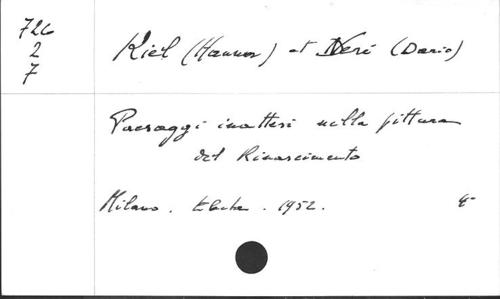 726
2
7
Kiel (Hanna) et Neri (Dario)
Paesaggi inattesi nella pittura
del Rinascimento
Milano. Electa. 1952.